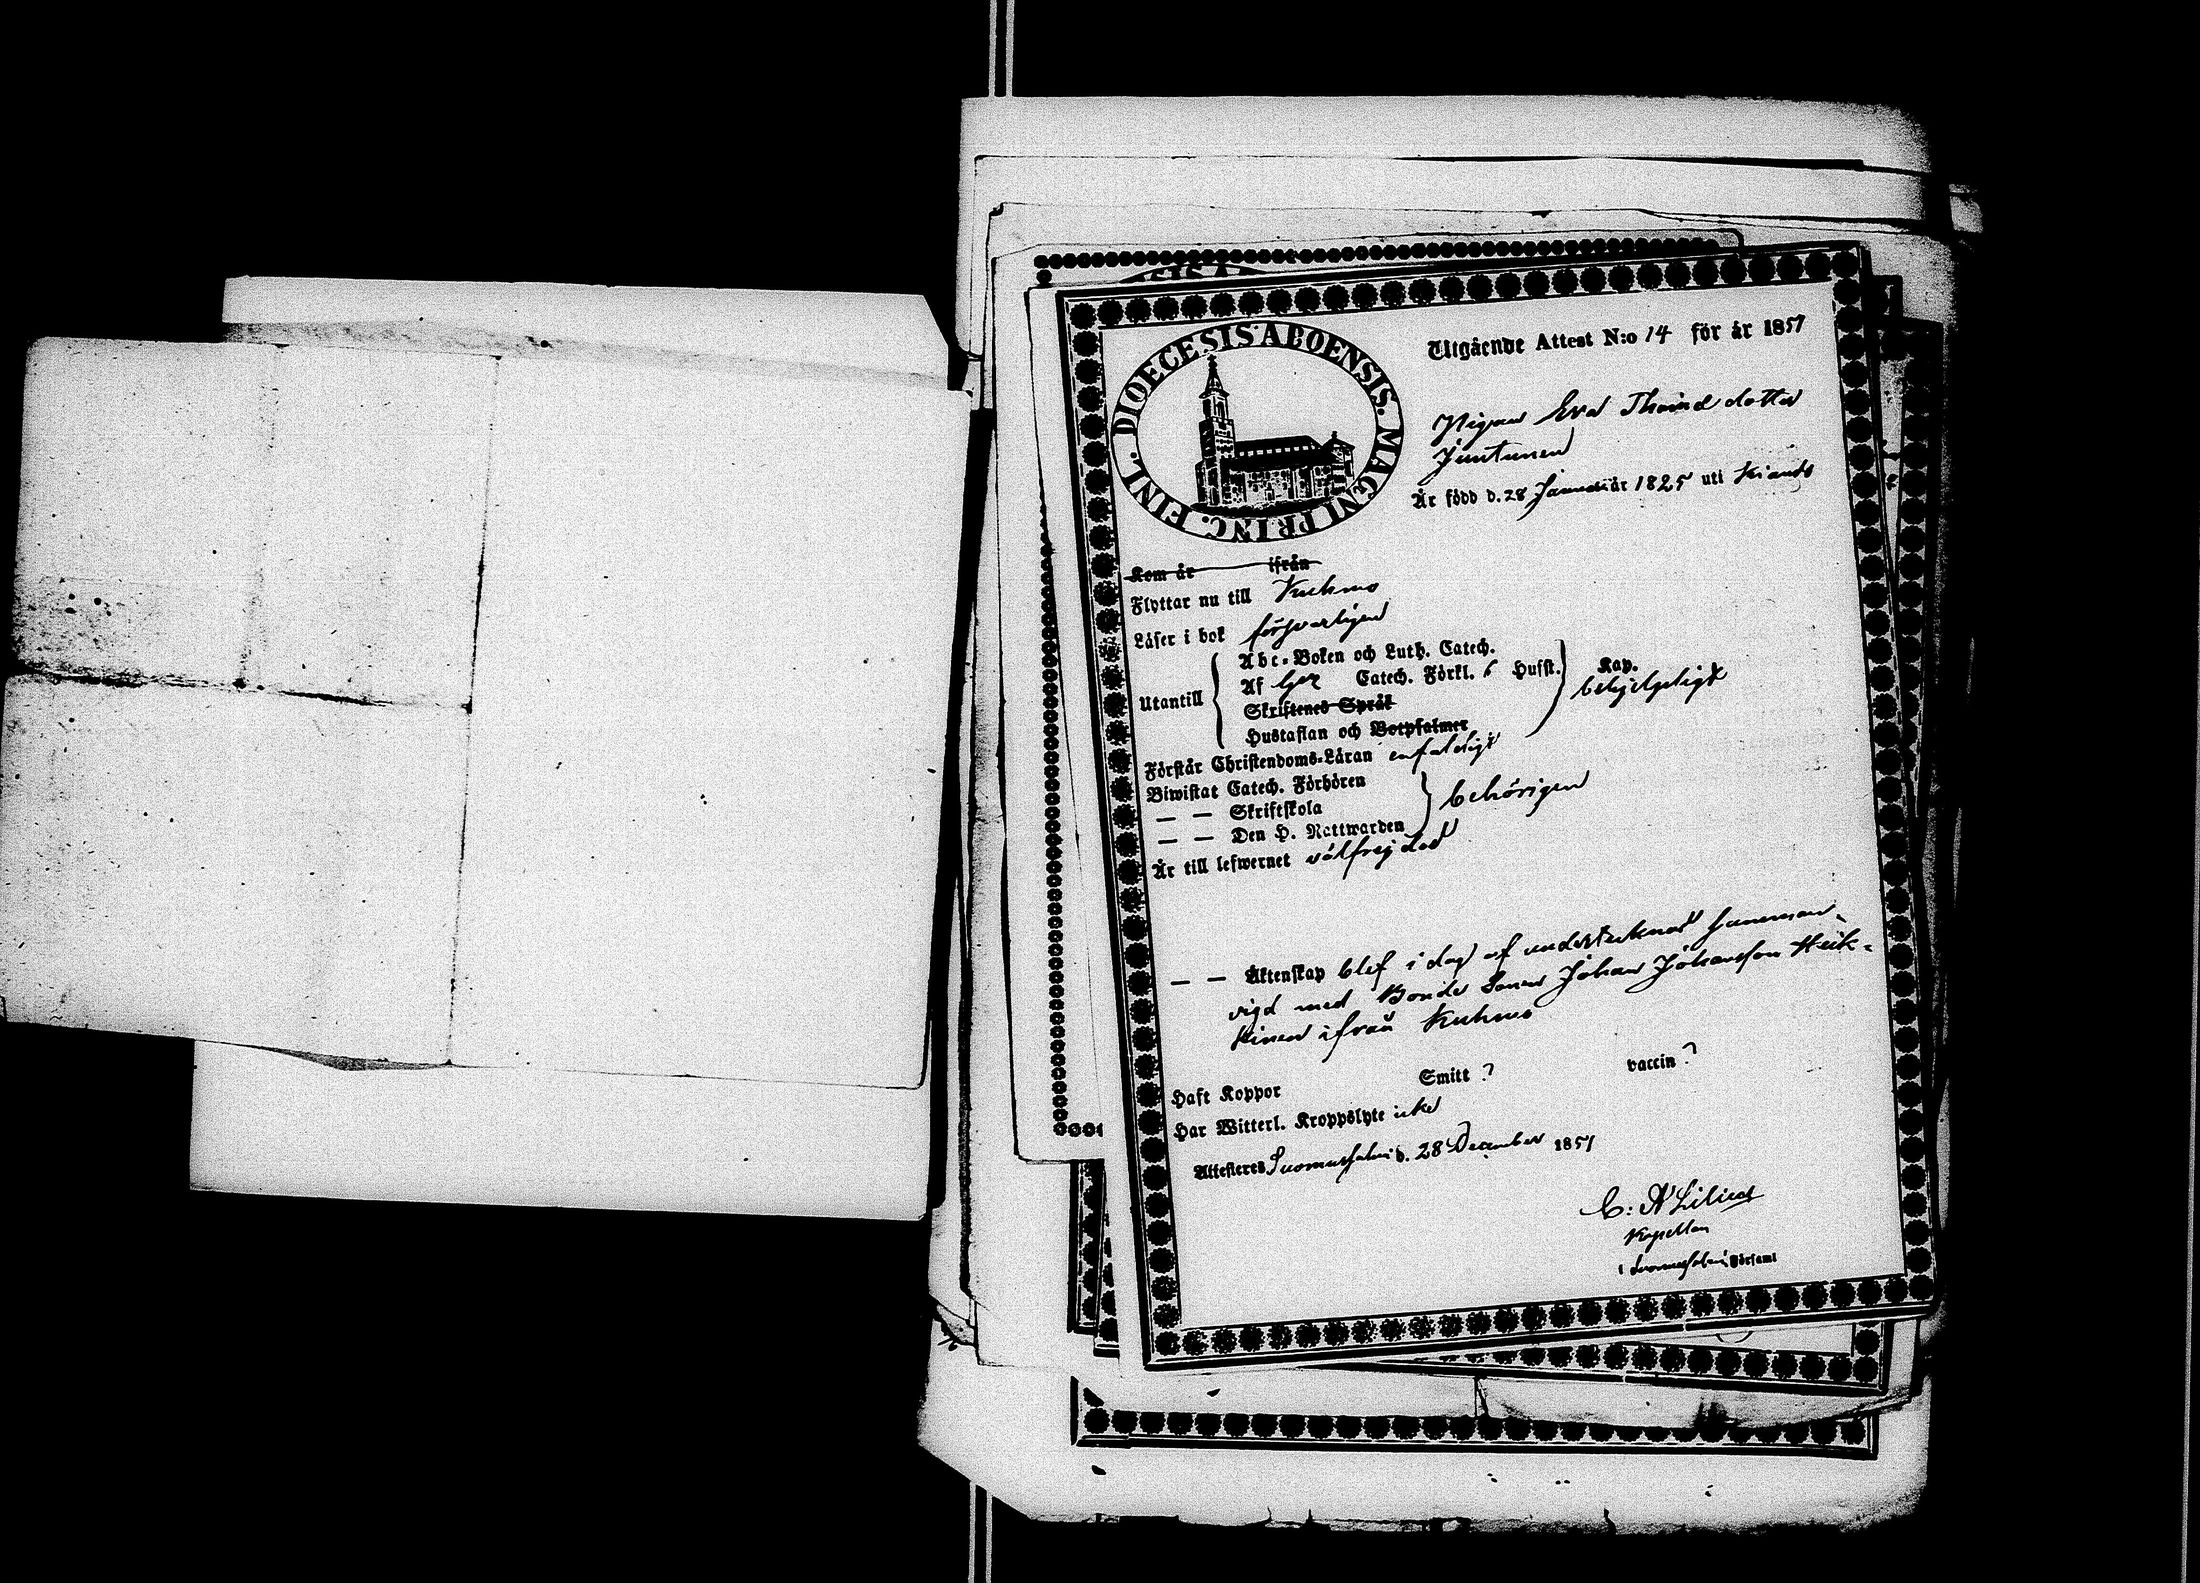 DIOECESIS ABOENSIS. MAGNI PRINC. FINL.
Utgående Attest N:o 14 för år 1857
Pigan Eva Thomæ dotter
Juntunen
Är född d. 28 Januari år 1825 uti Kianda
Kom år ifrån
Flyttar nu till Kuhmo
Läser i bok försvarligen
Abc-Boken och Luth. Catech.
Af Catech. Förkl. 6 Hufst. Kap.
Utantill behjelpeligt
Skriftenes Språk
Hustaflan och Botpsalmer
Förstår Christendoms-Läran enfaldigt
Biwistat Catech. Förhören
— — Skriftskola behörigen
— — Den H. Nattwarden
Är till lefwernet välfrejdad
— — Äktenskap blef i dag af undertecknad samman-
vigd med Bonde Sonen Johan Johansson Heik-
kinen ifrån Kuhmo
Haft Koppor Smitt ? vaccin ?
Har Witterl. Kroppslyte icke
Attesteras Suomussalmi d. 28 December 1857
C: A Lilius
Kapellan
i Suomussalmi Församl